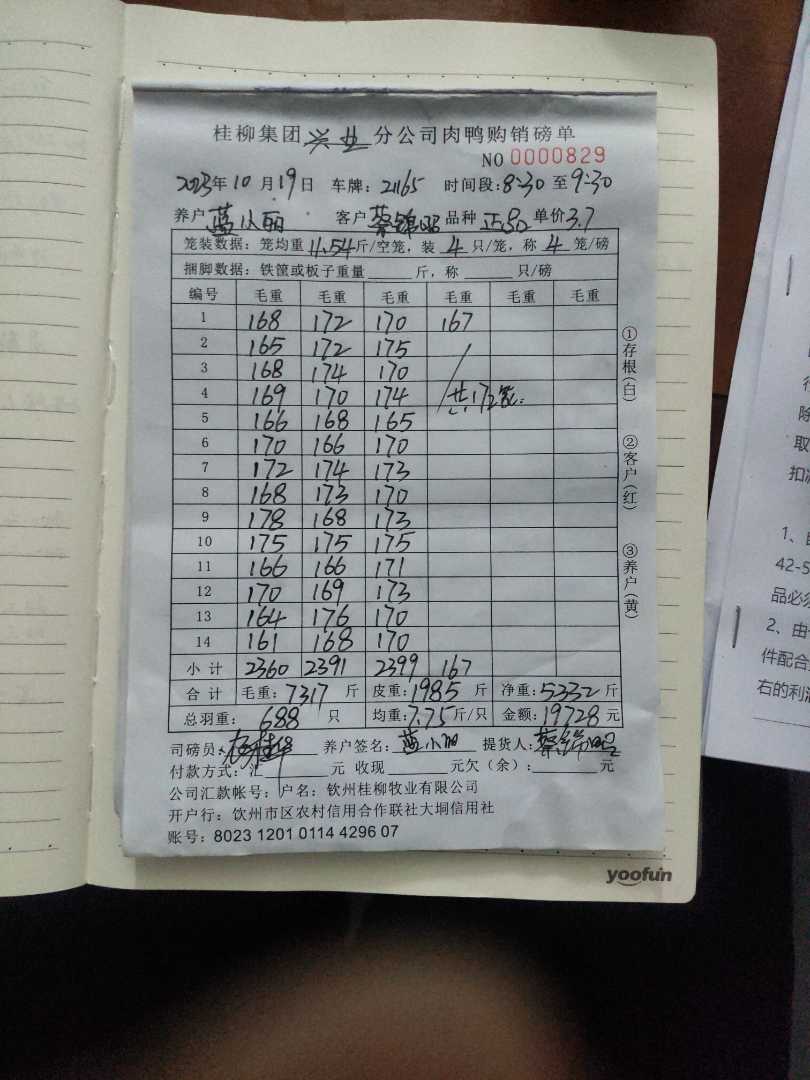 桂柳集团 兴业 分公司肉鸭购销磅单
NO 0000829
2023年10月19日 车牌：21165 时间段：8:30至9:30
养户 蓝小丽 客户 蔡锦昭 品种 正品 单价3.7
笼装数据：笼均重11.54斤/空笼，装4只/笼，称4笼/磅
捆脚数据：铁筐或板子重量 斤，称 只/磅
编号 毛重 毛重 毛重 毛重 毛重 毛重
1 168 172 170 167
2 165 172 175
3 168 174 170
4 169 170 174 共172笼.
5 166 168 165
6 170 166 170
7 172 174 173
8 168 173 170
9 178 168 173
10 175 175 175
11 166 166 171
12 170 169 173
13 164 176 170
14 161 168 170
小计 2360 2391 2399 167
合计 毛重：7317斤 皮重：1985斤 净重：5332斤
总羽重：688只 均重：7.75斤/只 金额：19728元
司磅员： 养户签名：蓝小丽 提货人：蔡锦昭
付款方式：汇 元 收现 元欠（余）： 元
公司汇款帐号：户名：钦州桂柳牧业有限公司
开户行：钦州市区农村信用合作联社大垌信用社
账号：8023 1201 0114 4296 07
①存根(白)
②客户(红)
③养户(黄)
yoofun
得
除
取
扣
1、
42-5
品必须
2、由
件配合
右的利